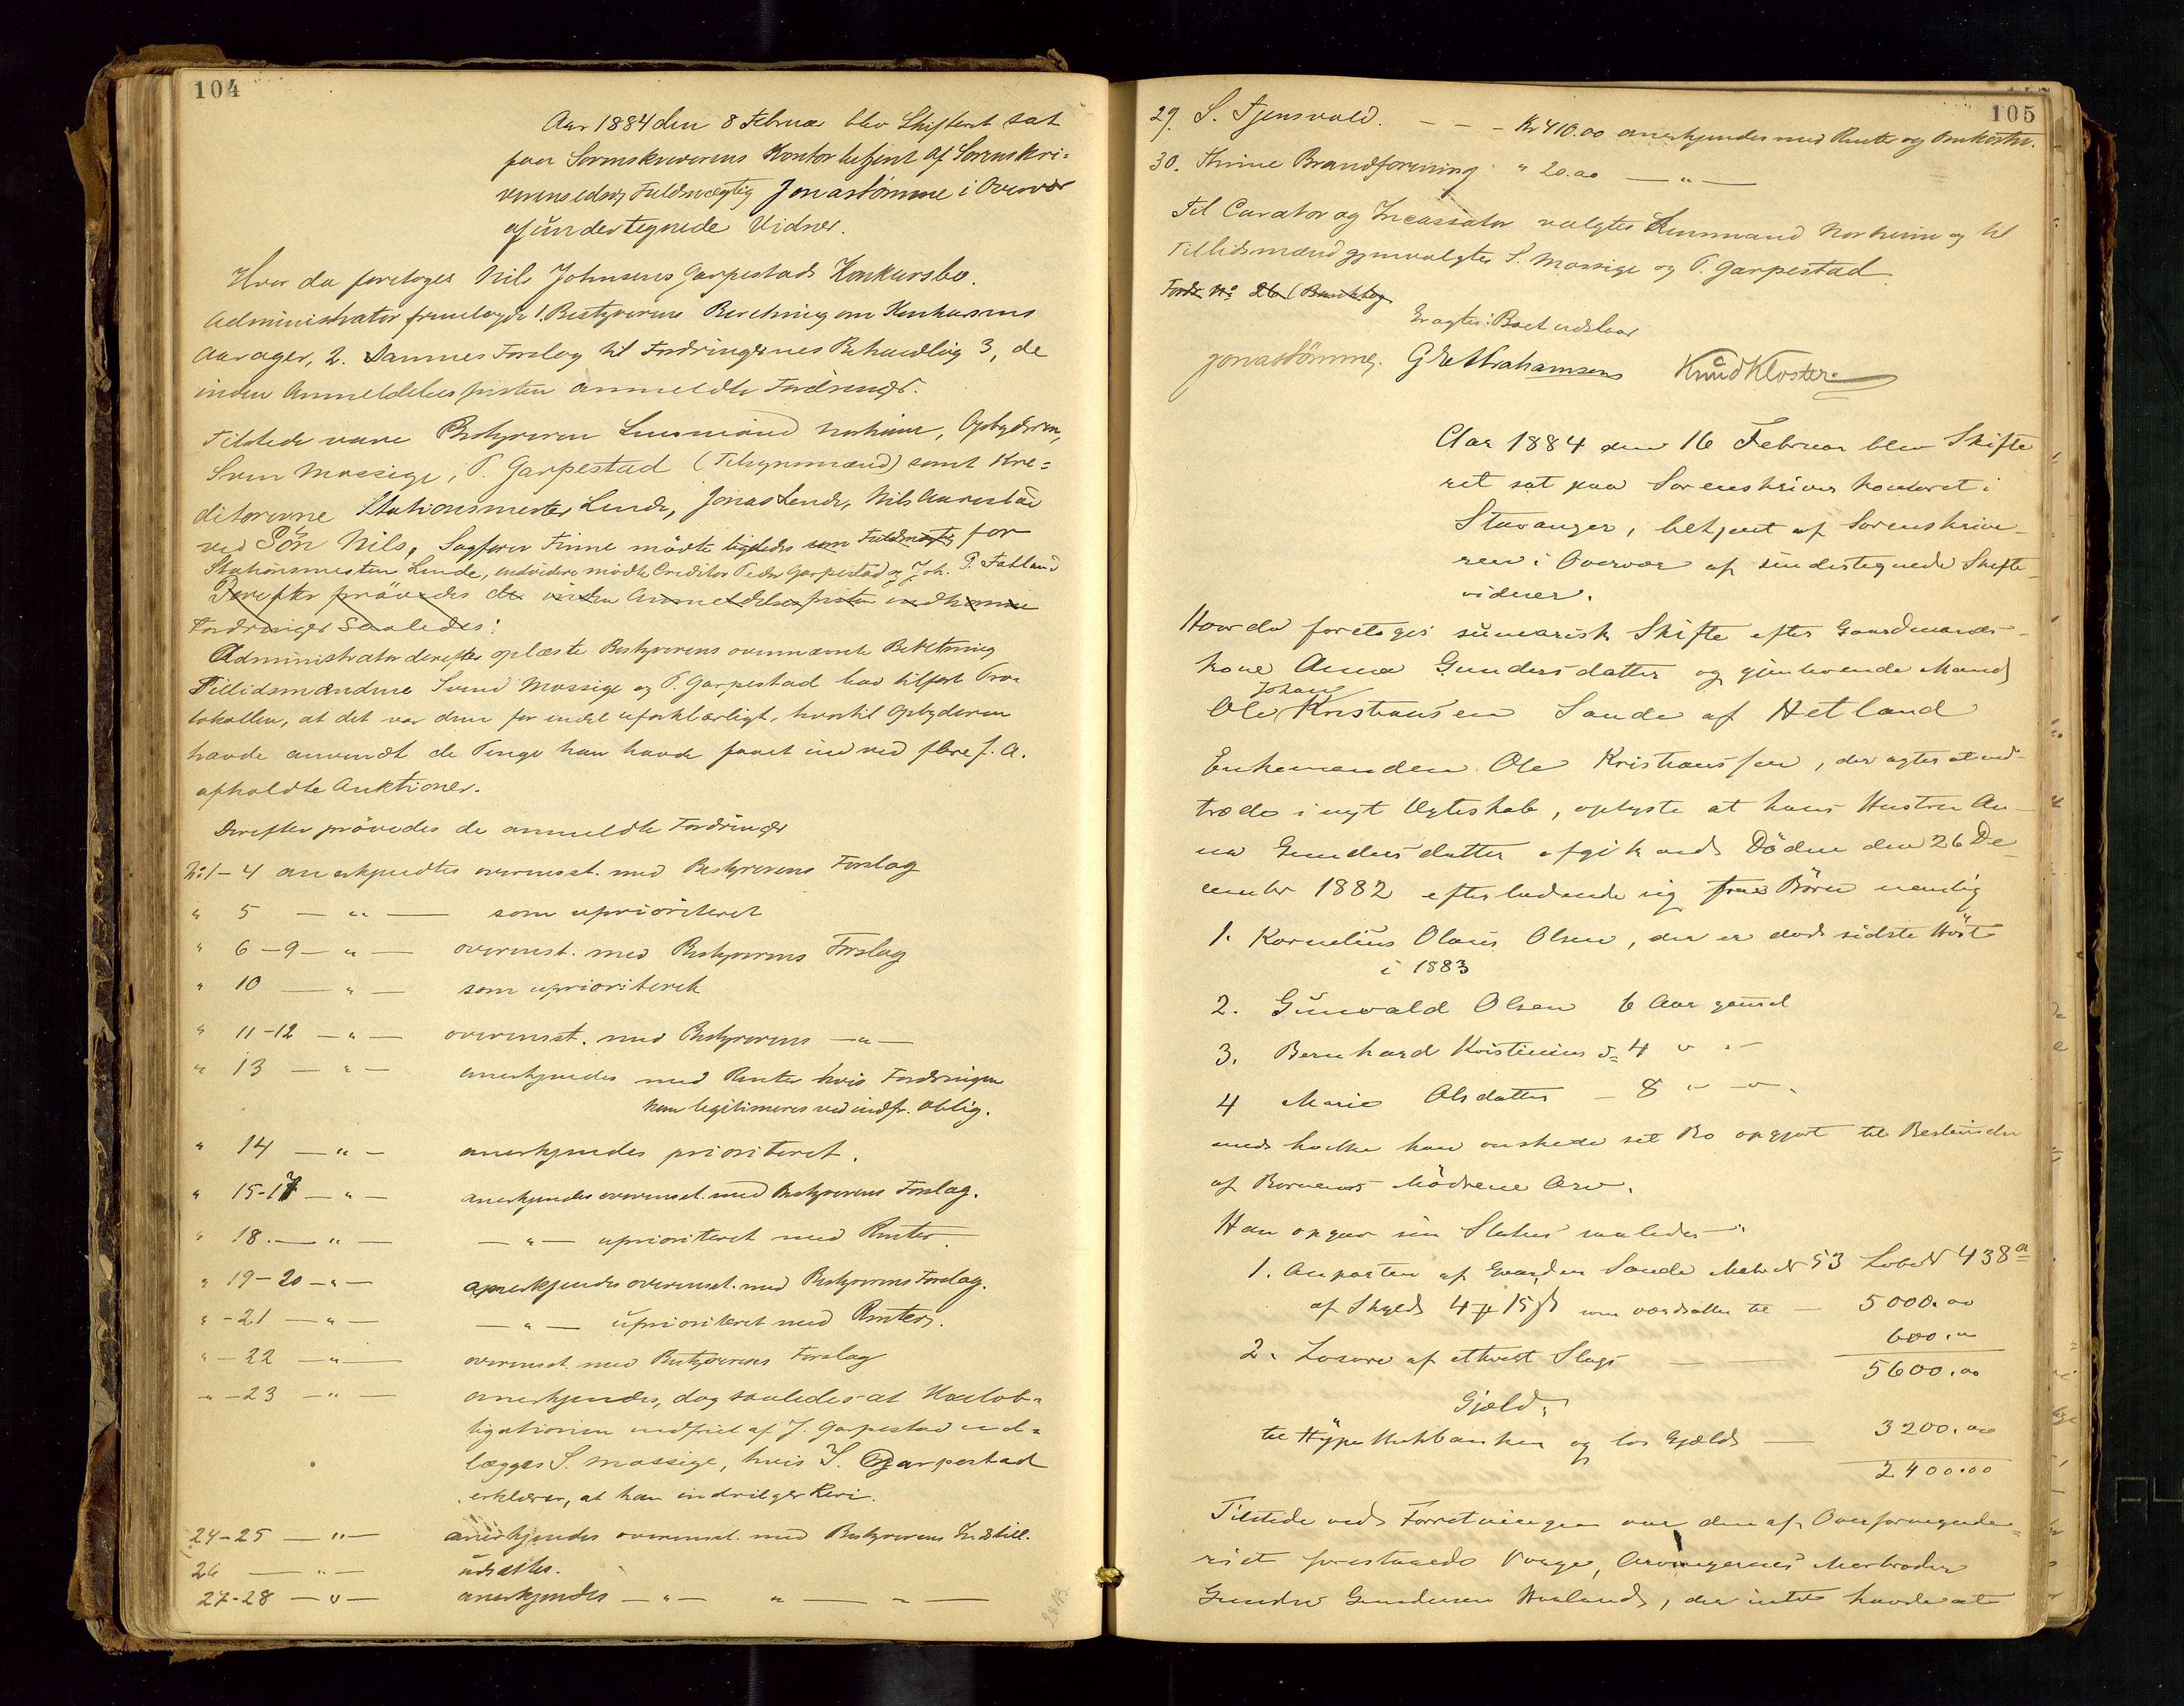 104
Aar 1884 den 8 Februar blev Skifteret sat
paa Sorenskriverens Kontor betjent af Sorenskri=
verens edsv. Fuldmægtig Jonas Tømme i Overvær
af undertegnede Vidner.
Hvor da foretoges Nils Johnsens Garpestads Konkursbo.
Administrator fremlagde 1. Bestyrerens Beretning om Konkursens
Aarsager, 2. Sammes Forslag til Fordringernes Behandling 3, de
inden Anmeldelsesfristen anmeldte Fordringer.
Tilstede vare Bestyreren Lensmand Norheim, Opbyderen,
Sven Mossige, T. Garpestad (Tilsynsmænd) samt Kre=
ditorerne Stationsmester Lende, Jonas Lende, Nils Aarestad
ved Sön Nils, Sagfører Finne mödte ligeledes som Fuldmægtig for
Stationsmester Lende, endvidere mödte Creditor Peder Garpestad og Joh. P. Fatland
Derefter prövedes de inden Anmeldelsesfristen indkomne
Fordringer saaledes:
Administrator derefter oplæste Bestyrerens ovennævnte Beretning
Tillidsmændene Svend Mossige og T. Garpestad lod tilføre Pro=
tokollen, at det var dem for endel uforklarligt, hvortil Opbyderen
havde anvendt de Penge han havde faaet ind ved flere f. A.
afholdte Auktioner.
Derefter prövedes de anmeldte Fordringer
No 1-4 anerkjendtes overensst. med Bestyrerens Forslag
" 5 — " — som uprioriteret
" 6-9 — " — overenst. med Bestyrerens Forslag
" 10 — " — som uprioriteret
" 11-12 — " — overensst. med Bestyrerens — " —
" 13 — " — anerkjendes med Renter hvis Fordringen
kan legitimeres ved indfr. Oblig.
" 14 — " — anerkjendes prioriteret.
" 15-17 — " — anerkjendes overensst. med Bestyrerens Forslag.
" 18. — " — — " — uprioriteret med Renter.
" 19-20 — " — anerkjendes overensst. med Bestyrerens Forslag.
" -21 — " — — " — uprioriteret med Renter.
" -22 — " — overensst. med Bestyrerens Forslag
" -23 — " — anerkjendes, dog saaledes at
ligationen indfriet af J. Garpestad ud=
lægges S. Mossige, hvis J. Garpestad
erklærer, at han indvilger heri.
24-25 — " — anerkjendes overensst. med Bestyrerens Indstill.
26 — " — udsættes.
27-28 — " — anerkjendes — " — " — " —
105
29. S. Tjensvold. — — - Kr 410.00 anerkjendes med Renter og Omkostn.
30. Thime Brandforening " 20.00 — " —
Til Curator og Incassator valgtes Lensmand Norheim og til
Tillidsmænd gjenvalgtes S. Mossige og T. Garpestad.
Fordr No 26
Eragtes: Boet udstaar
Jonas Tømme. G E Abrahamsen Knud Kloster.
Aar 1884 den 16 Februar blev Skifte
ret sat paa Sorenskriver Kontoret i
Stavanger, betjent af Sorenskrive
ren i Overvær af undertegnede Skifte
vidner.
Hvor da foretoges sumarisk Skifte efter Gaardmands=
kone Anna Gundersdatter og gjenlevende Mand
Johan
Ole Kristiansen Sande af Hetland
Enkemanden Ole Kristianssen, der agter at ind-
træde i nyt Ægteskab, oplyste at hans Hustru An-
na Gundersdatter afgik ved Döden den 26 De
cember 1882 efterladende sig Börn nemlig
1. Kornelius Olaus Olsen, der er död sidste Höst
i 1883
2. Gunvald Olsen 6 Aar gamel
3. Bernhard Kristinius do 4 " "
4 Marie Olsdatter — 8 " — " .
med hvilke han önskede sit Bo opgjort til Bestemelse
af Bornenes Mödrene Arv.
Han opgav sin Status saaledes
1. Anparten af Gaarden Sande Matr No 53 Lobe No 438 a
af Skyld 4 15 som værdsattes til — 5000.00
2. Løsøre af ethvert Slags — — 600.00
5600.00
Gjæld:
til Hypothekbanken og los Gjæld — 3200.00
2400.00
Tilstede ved Forretningen var den af Overformynde=
riet Værge, Arvingernes Morbroder
Gunder Gundersen Haaland, der intet havde at